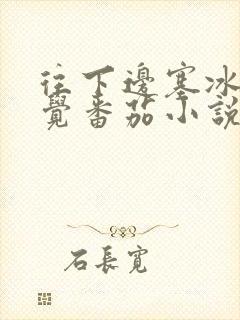 往下邊塞冰
覺番茄小說
石長寬